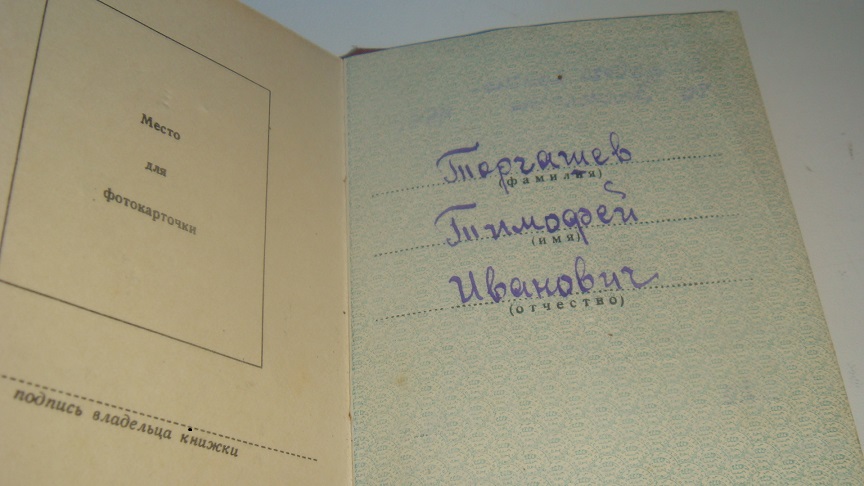 Место
для
фотокарточки
подпись владельца книжки
Торгашев
(фамилия)
Тимофей
(имя)
Иванович
(отчество)